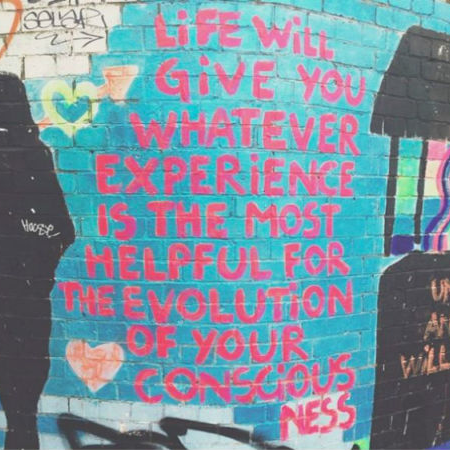 LiFE WiLL
GiVE YOU
WHATEVER
EXPERiENCE
IS THE MOST
HELPFUL FOR
THE EVOLUTiON
OF YOUR
CONSCiOUS
NESS
WILL